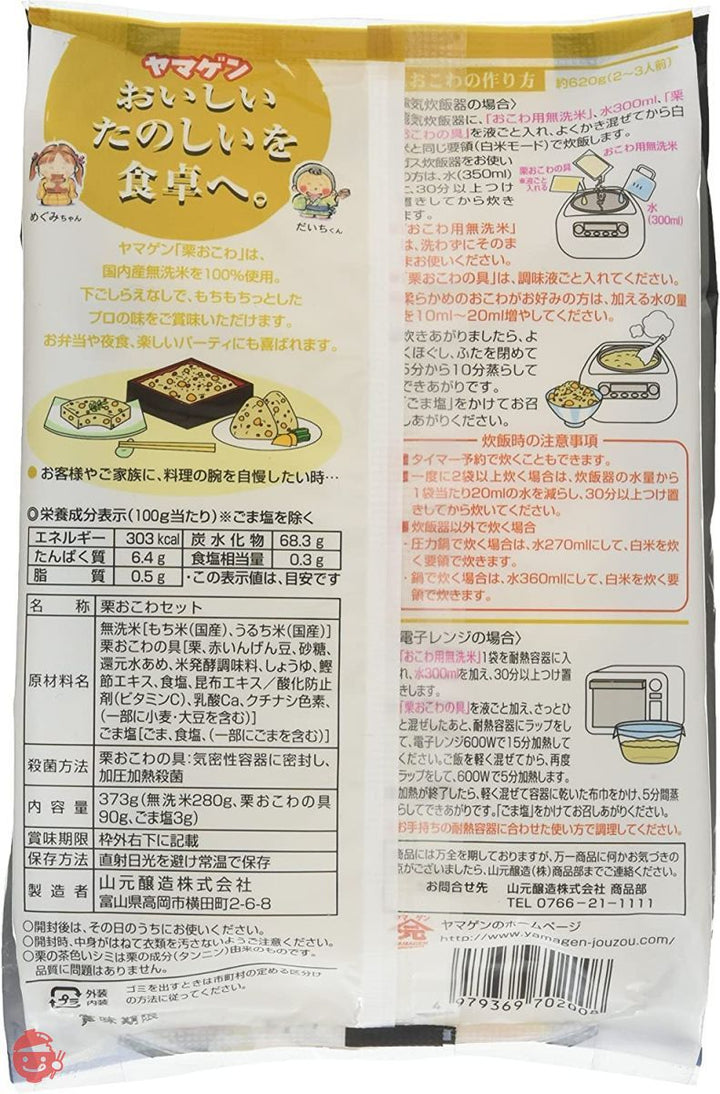 ヤマゲン
おいしい
たのしいを
食卓へ。
めぐみちゃん
だいちくん
ヤマゲン「栗おこわ」は、
国内産無洗米を100%使用。
下ごしらえなしで、もちもちっとした
プロの味をご賞味いただけます。
お弁当や夜食、楽しいパーティにも喜ばれます。
●お客様やご家族に、料理の腕を自慢したい時…
◎栄養成分表示(100g当たり)※ごま塩を除く
エネルギー 303 kcal 炭水化物 68.3 g
たんぱく質 6.4 g 食塩相当量 0.3 g
脂質 0.5 g ・この表示値は、目安です
名称 栗おこわセット
原材料名 無洗米[もち米(国産)、うるち米(国産)]
栗おこわの具[栗、赤いんげん豆、砂糖、
還元水あめ、米発酵調味料、しょうゆ、鰹
節エキス、食塩、昆布エキス/酸化防止
剤(ビタミンC)、乳酸Ca、クチナシ色素、
(一部に小麦・大豆を含む)]
ごま塩[ごま、食塩、(一部にごまを含む)]
殺菌方法 栗おこわの具:気密性容器に密封し、
加圧加熱殺菌
内容量 373g(無洗米280g、栗おこわの具
90g、ごま塩3g)
賞味期限 枠外右下に記載
保存方法 直射日光を避け常温で保存
製造者 山元醸造株式会社
富山県高岡市横田町2-6-8
○開封後は、その日のうちにお使いください。
○開封時、中身がはねて衣類を汚さないようご注意ください。
○栗の茶色いシミは栗の成分(タンニン)由来のものです。
品質に問題はありません。
プラ
外装
内装
ゴミを出すときは市町村の定める区分け
の方法に従ってください。
賞味期限
おこわの作り方 約620g(2~3人前)
気炊飯器の場合〉
気炊飯器に、「おこわ用無洗米」、水300ml、「栗
おこわの具」を液ごと入れ、よくかき混ぜてから白
と同じ要領(白米モード)で炊飯します。
ス炊飯器をお使い
の方は、水(350ml)
、30分以上つけ
置きしてから炊き
ます。
おこわ用無洗米」
は、洗わずにそのま
まお使いください。
栗おこわの具
※液ごと
入れる
おこわ用無洗米
水
(300ml)
栗おこわの具」は、調味液ごと入れてください。
柔らかめのおこわがお好みの方は、加える水の量
を10ml~20ml増やしてください。
炊きあがりましたら、よ
くほぐし、ふたを閉めて
5分から10分蒸らして
できあがりです。
「ごま塩」をかけてお召
しあがりください。
炊飯時の注意事項
■タイマー予約で炊くこともできます。
■一度に2袋以上炊く場合は、炊飯器の水量から
1袋当たり20mlの水を減らし、30分以上つけ置
きしてから炊いてください。
■炊飯器以外で炊く場合
・圧力鍋で炊く場合は、水270mlにして、白米を炊
く要領で炊きます。
・鍋で炊く場合は、水360mlにして、白米を炊く要
領で炊きます。
電子レンジの場合〉
「おこわ用無洗米」1袋を耐熱容器に入
れ、水300mlを加え、30分以上つけ置
きします。
「栗おこわの具」を液ごと加え、さっとひ
と混ぜしたあと、耐熱容器にラップをし
て、電子レンジ600Wで15分加熱して
ください。ご飯を軽く混ぜてから、再度
ラップをして、600Wで5分加熱します。
加熱が終了したら、軽く混ぜて容器に乾いた布巾をかけ、5分間蒸
らしてできあがりです。「ごま塩」をかけてお召しあがりください。
お手持ちの耐熱容器に合わせた使い方で調理してください。
商品には万全を期しておりますが、万一商品に何かお気づきの
点がございましたら、山元醸造(株)商品部までご連絡ください。
お問合せ先 山元醸造株式会社 商品部
TEL 0766-21-1111
ヤマゲン
YAMAGEN
ヤマゲンのホームページ
http://www.yamagen-jouzou.com/
4 979369 702008